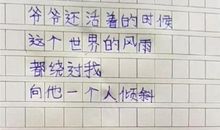 爷爷还活着的时候
这个世界的风雨
都绕过我
向他一个人倾斜